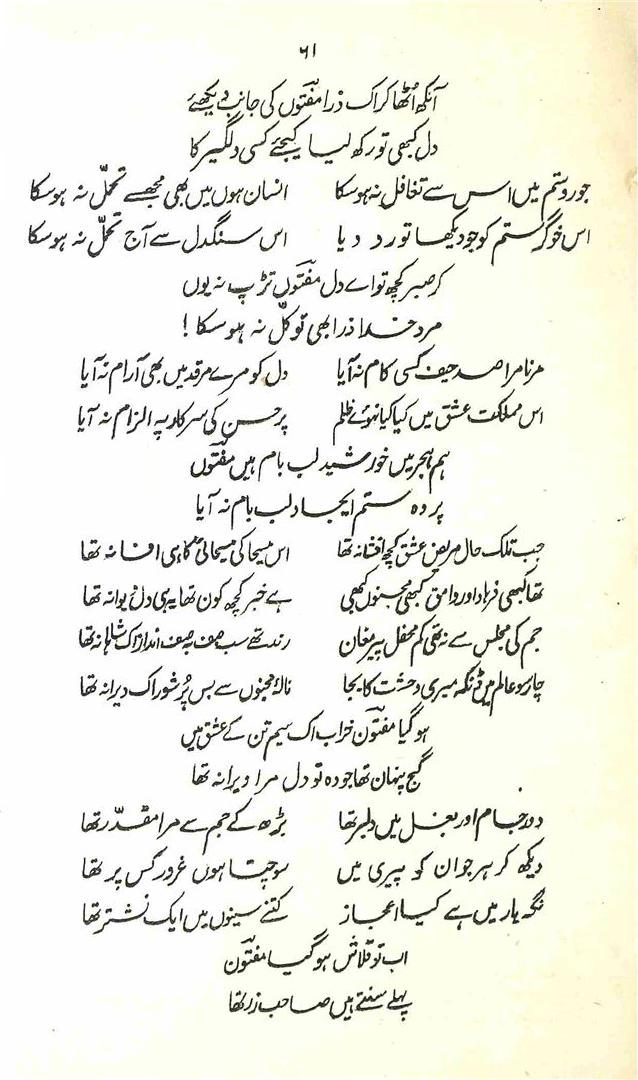 ۶۱
آنکھ اُٹھا کر اک ذرا مفتوں کی جانب دیکھئے
دل کبھی تو رکھ لیا کیجئے کسی دلگیر کا
جور و ستم میں اس سے تغافل نہ ہوسکا انسان ہوں میں بھی مجھسے تحمّل نہ ہوسکا
اس خوگرِ ستم کو جو دیکھا تو رد دیا اس سنگدل سے آج تحمّل نہ ہوسکا
کر صبر کچھ تو اے دل مفتوں تڑپ نہ یوں
مرد خدا ذرا بھی توکّل نہ ہوسکا !
مرنا مرا صد حیف کسی کام نہ آیا دل کو مرے مرقد میں بھی آرام نہ آیا
اس مملکت عشق میں کیا کیا نہوئے ظلم پر حسن کی سرکار پہ الزام نہ آیا
ہم ہجر میں خورشید لب بام ہیں مفتوں
پر وہ ستم ایجاد لب بام نہ آیا
جب تلک حال مریض عشق کچھ افشا نہ تھا اس مسیحا کی مسیحائی کا ہی افسانہ تھا
تھا کبھی فرہاد اور وامق کبھی مجنوں کبھی بے خبر کچھ کون تھا یہ ہی دل دیوانہ تھا
جم کی مجلس سے نہ تھی کم محفل پیر مغان رند تھے سب صف بہ صف انداز اک شاہانہ تھا
چار سو عالم میں ڈنکہ میری وحشت کا بجا نالۂ مجنوں سے بس پُر شور اک ویرانہ تھا
ہو گیا مفتون خراب اک سیم تن کے عشق میں
گنج پنہان تھا جو دہ تو دل مرا ویرانہ تھا
دور جام اور بغل میں دلبر تھا بڑھ کے جم سے مرا مقدّر تھا
دیکھ کر ہر جوان کو پیری میں سوچتا ہوں غرور کس پر تھا
نگہ یار میں ہے کیا اعجاز کتنے سینوں میں ایک نشتر تھا
اب تو قلاش ہو گیا مفتون
پہلے سنتے ہیں صاحب زر تھا